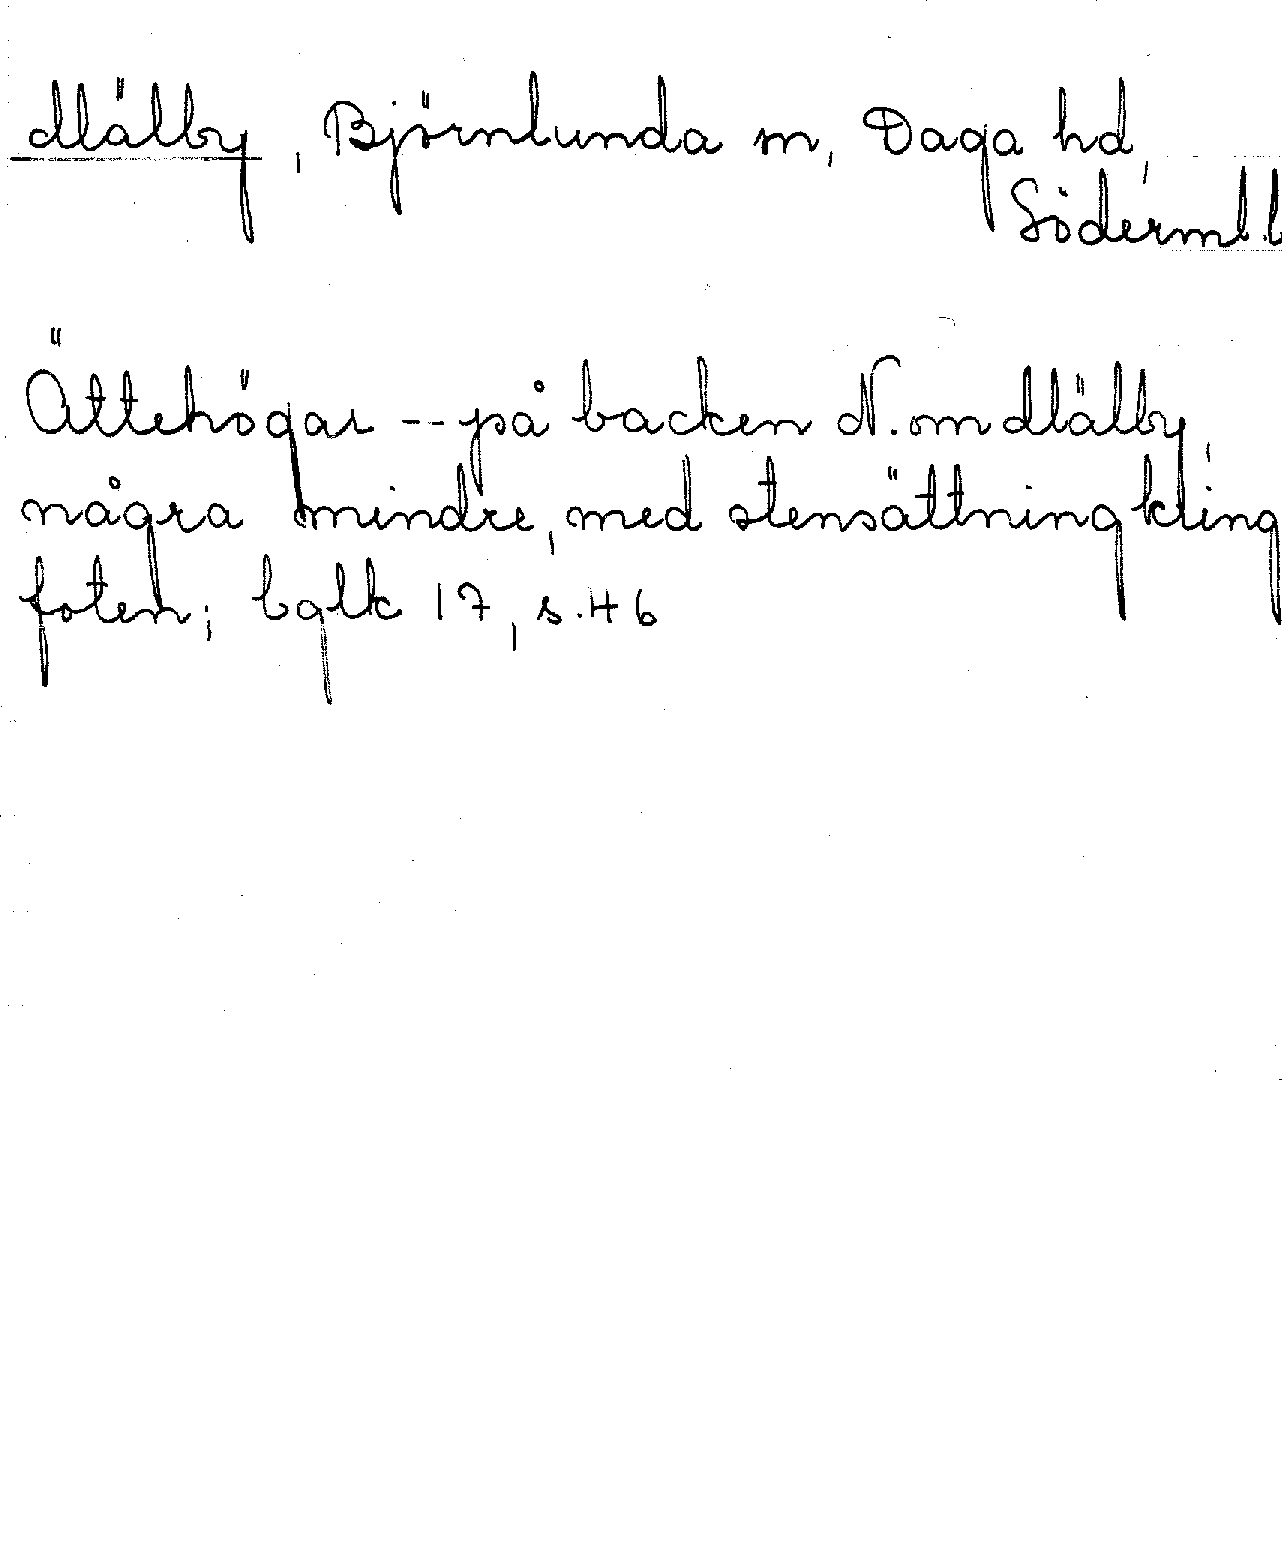 Mälby, Björnlunda sn, Daga hd,
Söderml. l
Ättehögar -- på backen N. om Mälby,
några mindre, med stensättning kring
foten; bglk 17, s. 46